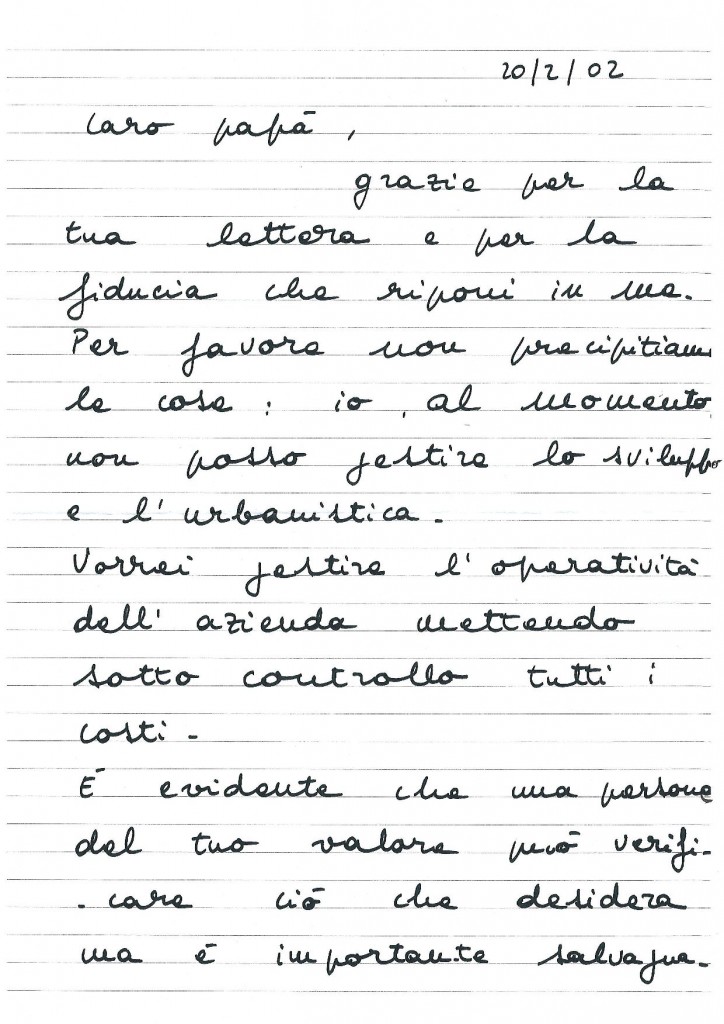 20/2/02
Caro papà,
grazie per la
tua lettera e per la
fiducia che riponi in me.
Per favore non precipitiamo
le cose: io, al momento
non posso gestire lo sviluppo
e l'urbanistica.
Vorrei gestire l'operatività
dell'azienda mettendo
sotto controllo tutti i
costi -
È evidente che una persona
del tuo valore può verifi-
- care ciò che desidera
ma è importante salvagua-